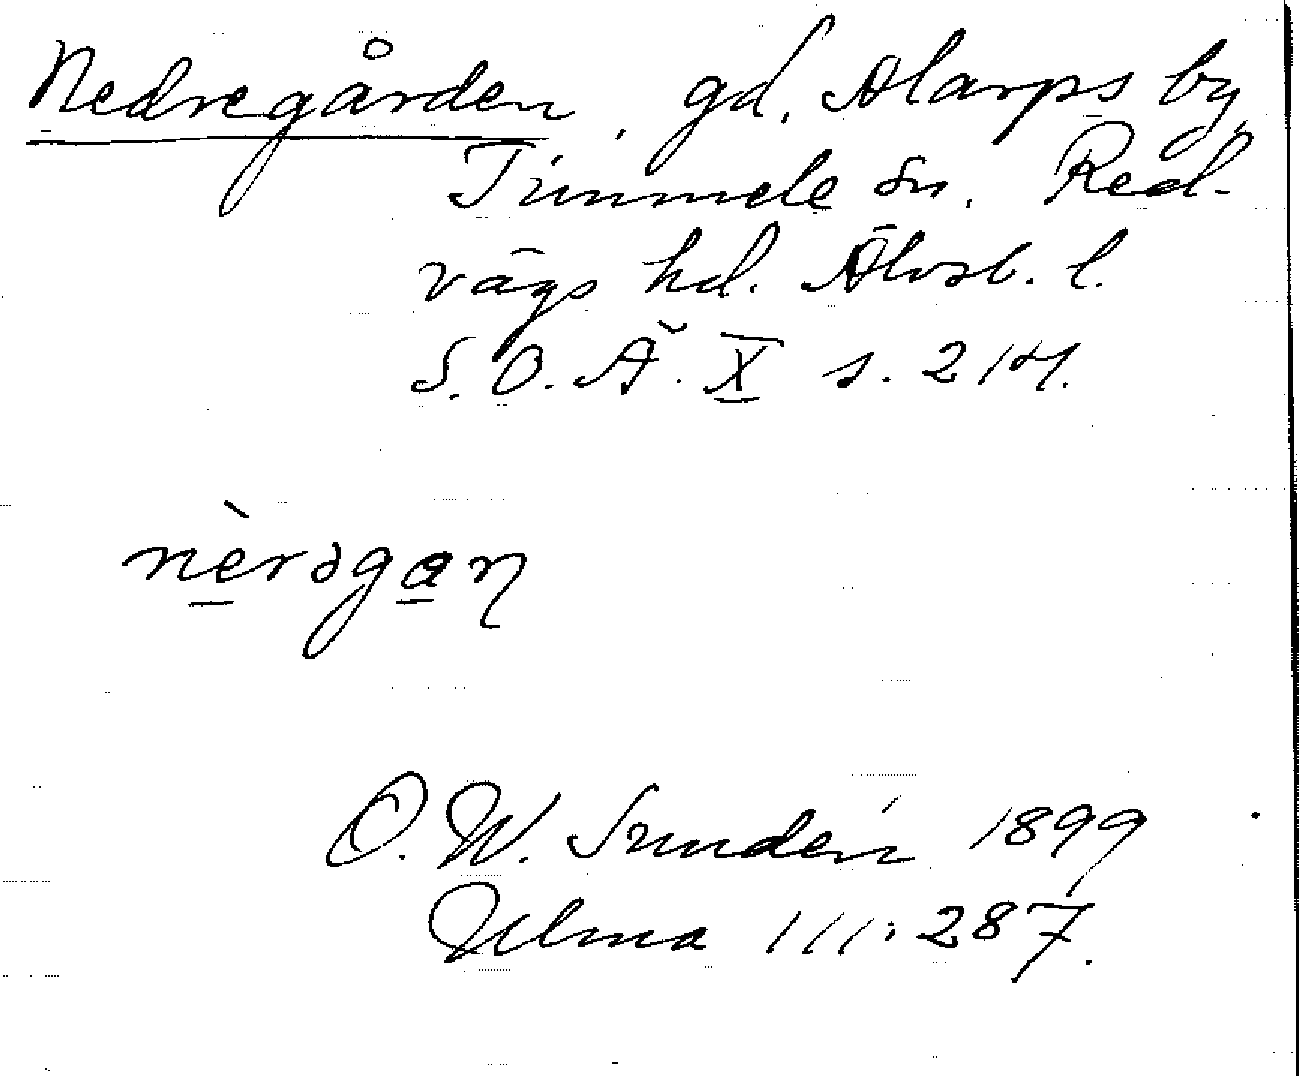 Nedregården. gd. Alarps by
Timmele sn. Red-
vägs hd. Älvsb. l.
S.O.Ä. X s. 214.
nèrəgaṇ
O.W. Sundén 1899
Ulma 111:287.